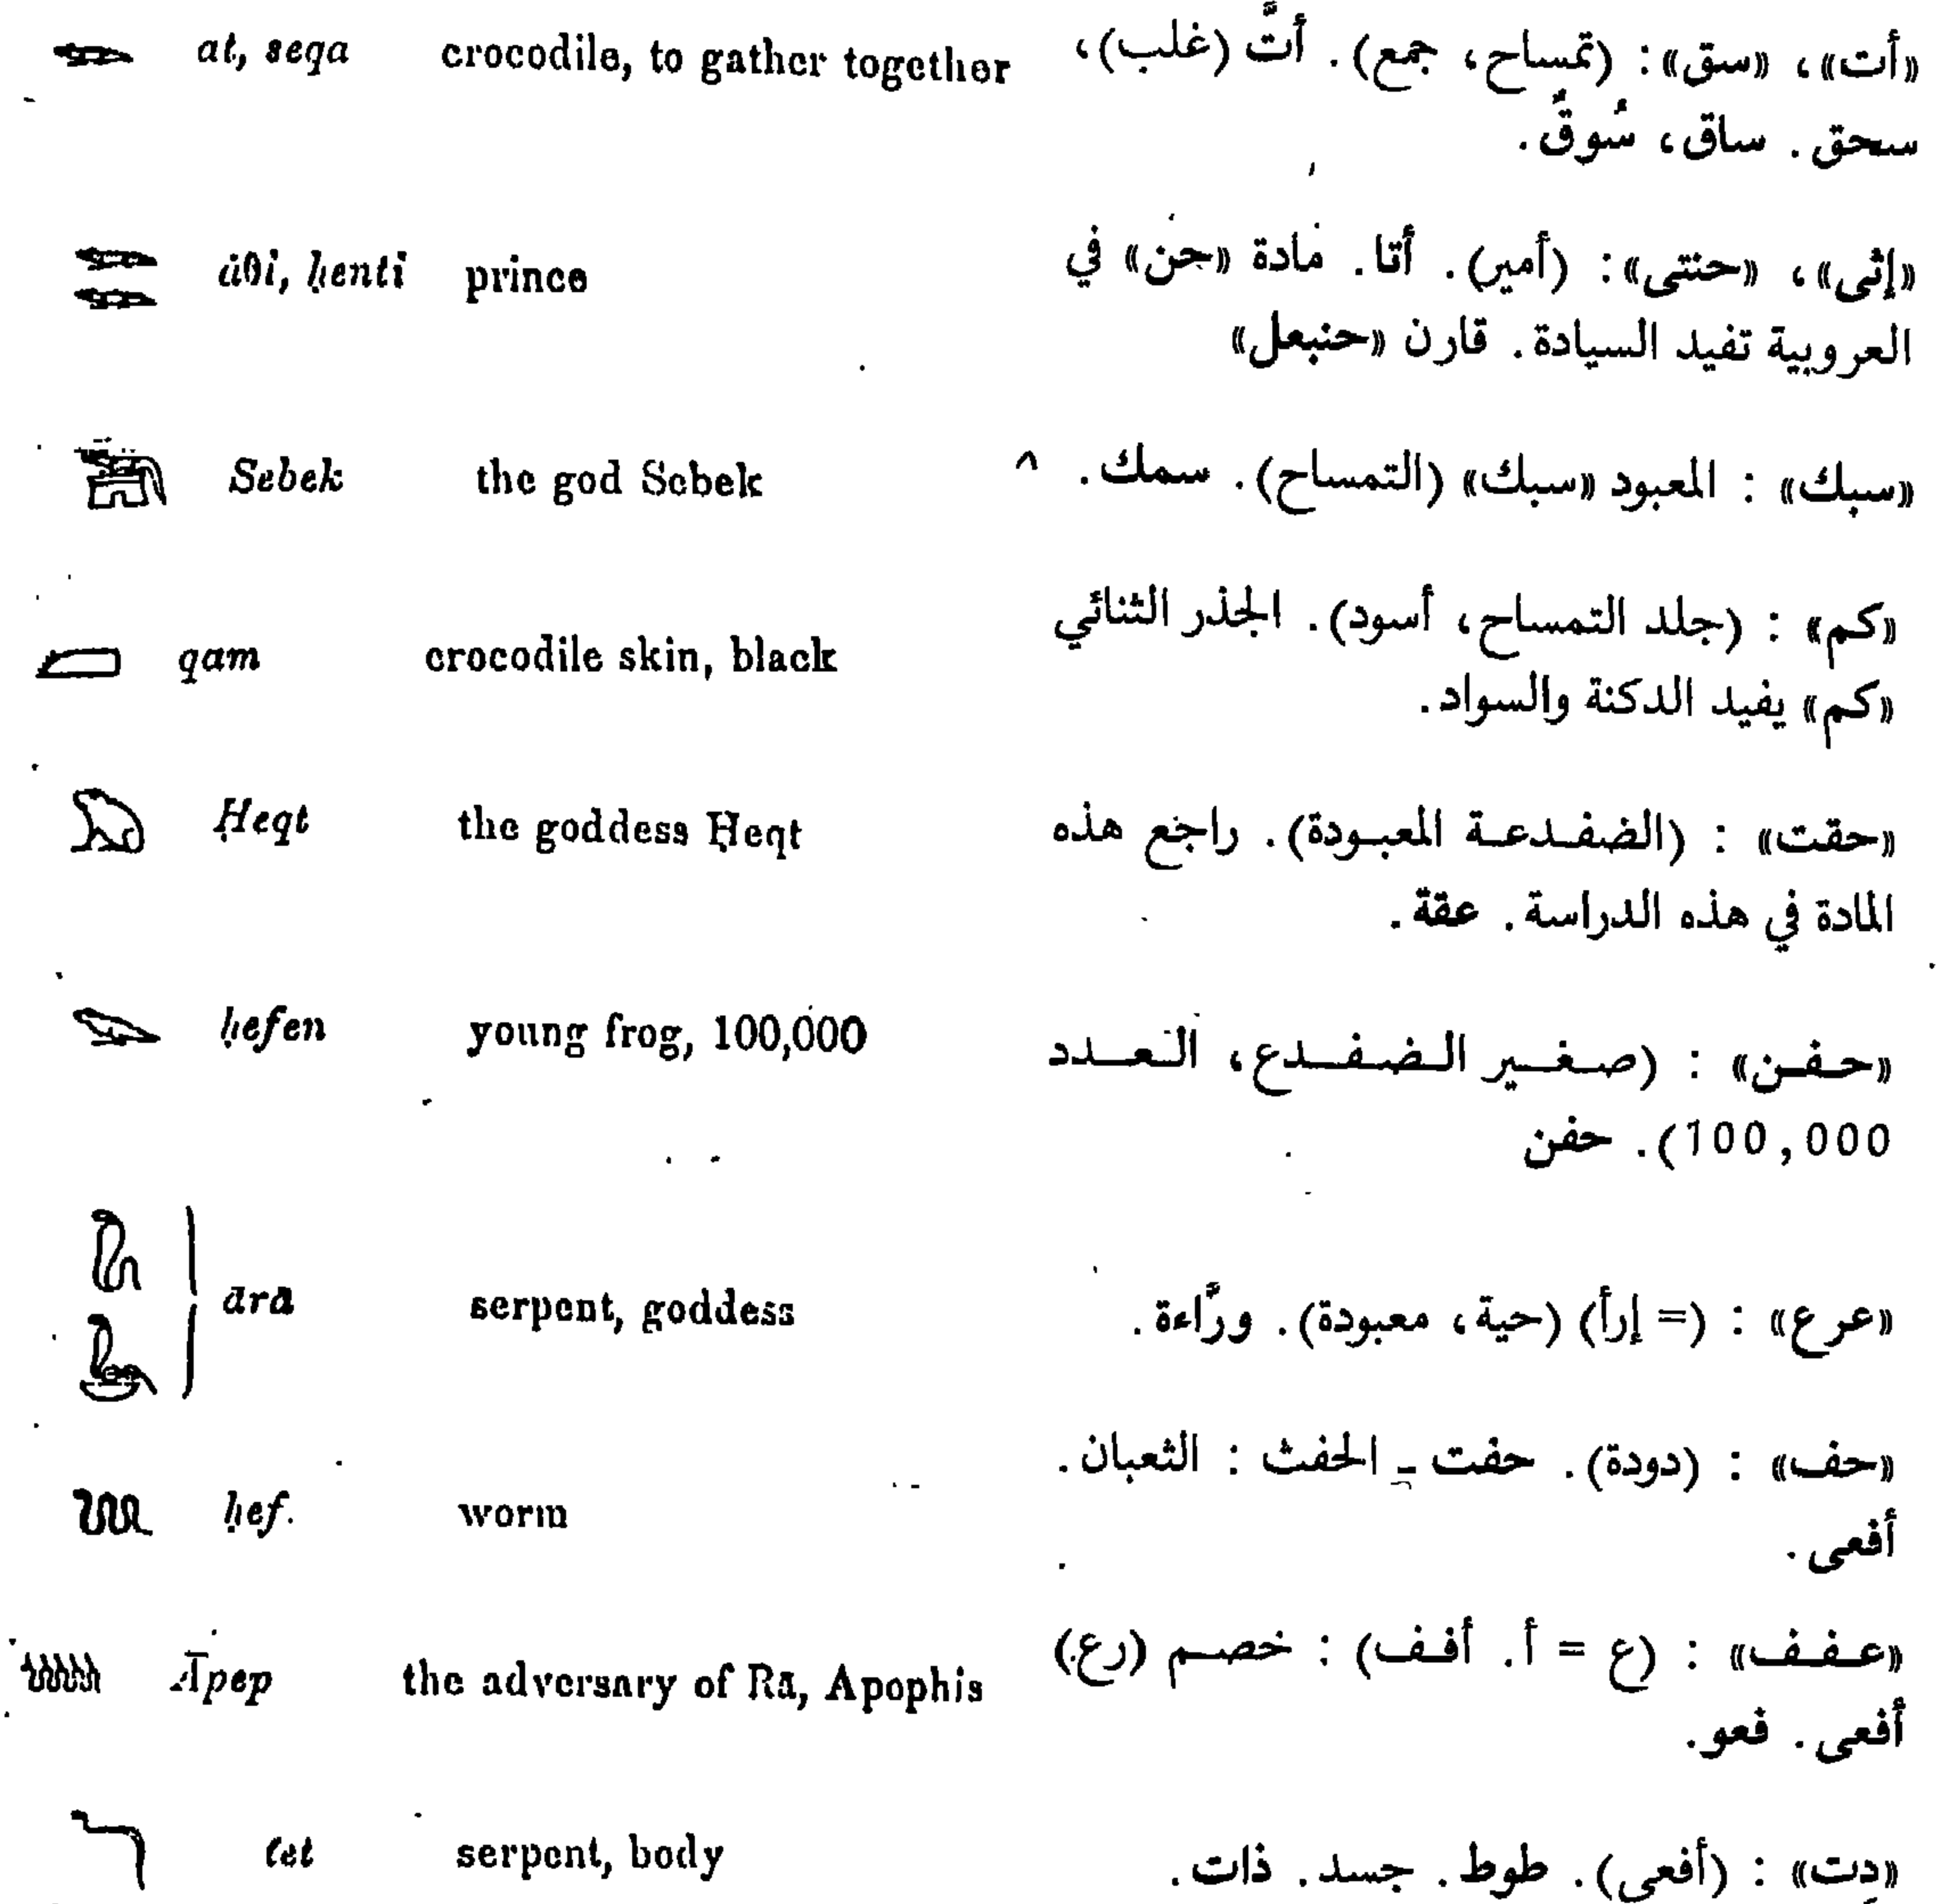 at, seqa crocodile, to gather together «أت»، «سق»: (تمساح، جمع). أتَّ (غلب)،
سحق. ساق، سُوقٌ.
áθi, ḥenti prince «إثى»، «حنتى»: (أمير). أتا. مادة «حن» في
العروبية تفيد السيادة. قارن «حنبعل»
Sebek the god Sebek «سبك» : المعبود «سبك» (التمساح). سمك.
qam crocodile skin, black «كم» : (جلد التمساح، أسود). الجذر الثنائي
«كم» يفيد الدكنة والسواد.
Ḥeqt the goddess Ḥeqt «حقت» : (الضفدعة المعبودة). راجع هذه
المادة في هذه الدراسة. عقة.
ḥefen young frog, 100,000 «حفن» : (صغير الضفدع، العدد
100,000). حفن
ārā serpent, goddess «عرع» : (= إرأ) (حية، معبودة). ورَّاءة.
ḥef. worm «حف» : (دودة). حفت - الحفث : الثعبان.
أفعى.
Āpep the adversary of Rā, Apophis «عفف» : (ع = أ. أفف) : خصم (رع)
أفعى. فعو.
tet serpent, body «دِت» : (أفعى). طوط. جسد. ذات.